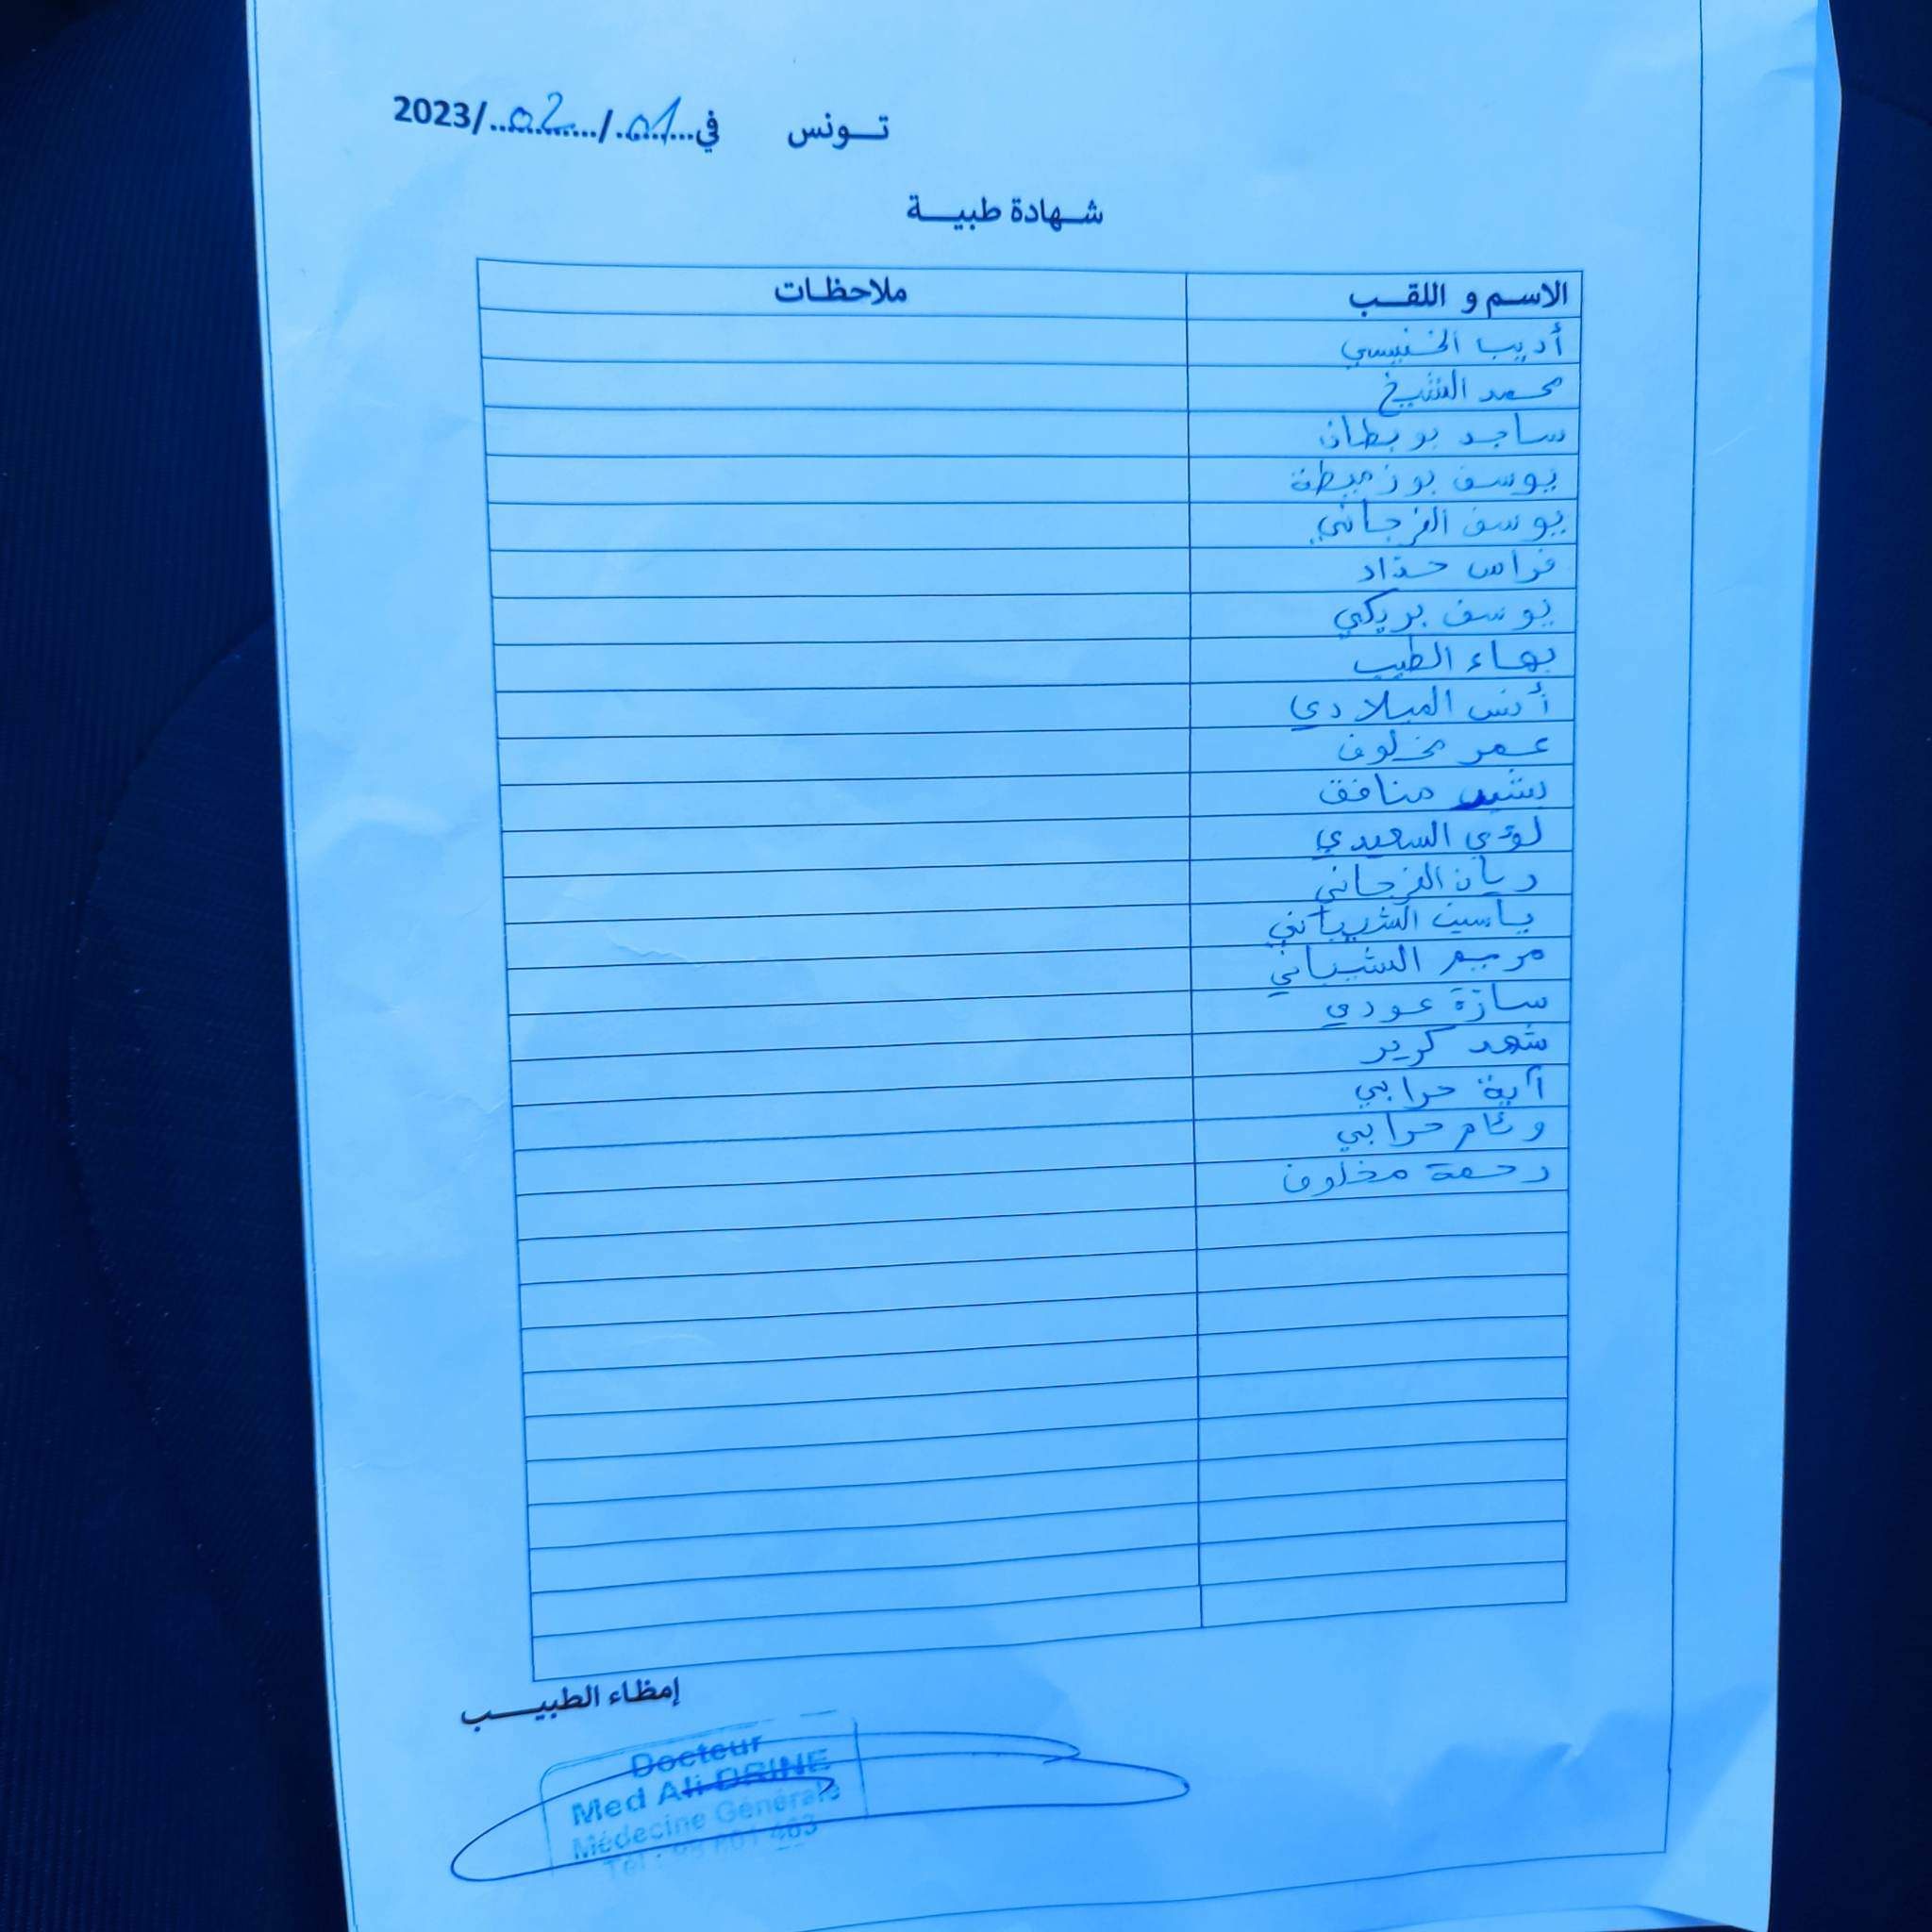 تـونس في 01/02/2023
شـهادة طبيـة
الاسـم و اللقـب ملاحظـات
أديب الخنيسي
محمد الشيخ
ساجد بوبطان
يوسف بوزميطة
يوسف الفرجاني
فراس حداد
يوسف بريكي
بهاء الطيب
أنس الميلادي
عمر مخلوف
منافق
لؤي السعيدي
ريان الفرجاني
ياسين الشيباني
مريم الشيباني
سارة عودي
شهد كرير
آية حرابي
وئام حرابي
رحمة مخلوف
إمظاء الطبيـب
Docteur
Med Ali DRINE
Médecine Générale
Tél :